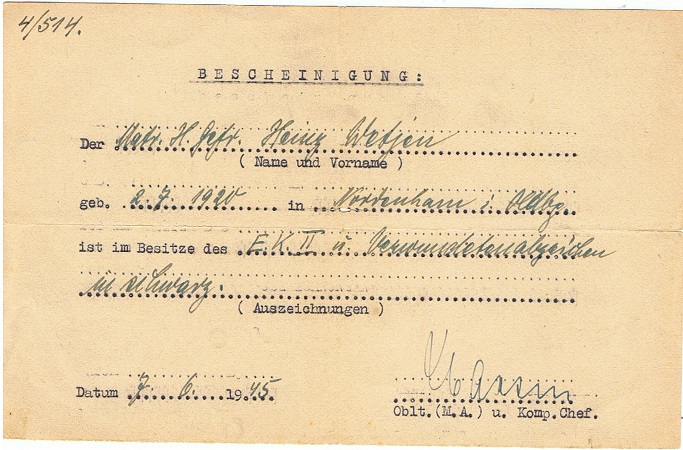 4/514.
BESCHEINIGUNG:
Der Matr. H. Gefr. Heinz Wetjen
( Name und Vorname )
geb. 2. 7. 1920 in Nordenham i. Oldbg.
ist im Besitze des E.K. II u. Verwundetenabzeichen
in schwarz.
( Auszeichnungen )
Datum 7. 6. 1945.
Oblt.(M.A.) u. Komp.Chef.